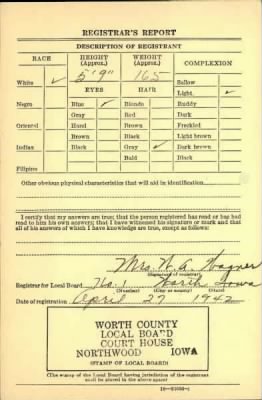 REGISTRAR'S REPORT
DESCRIPTION OF REGISTRANT
RACE HEIGHT (Approx.) WEIGHT (Approx.) COMPLEXION
White ✓ 5' 9" 165 Sallow
EYES HAIR Light ✓
Negro Blue ✓ Blonde Ruddy
Gray Red Dark
Oriental Hazel Brown Freckled
Brown Black Light brown
Indian Black Gray ✓ Dark brown
Bald Black
Filipino
Other obvious physical characteristics that will aid in identification
I certify that my answers are true; that the person registered has read or has had
read to him his own answers; that I have witnessed his signature or mark and that
all of his answers of which I have knowledge are true, except as follows:
Mrs. W. A. Wagner
(Signature of registrar)
Registrar for Local Board No. 1 Worth Iowa
(Number) (City or county) (State)
Date of registration April 27 1942
WORTH COUNTY
LOCAL BOARD
COURT HOUSE
NORTHWOOD IOWA
(STAMP OF LOCAL BOARD)
(The stamp of the Local Board having jurisdiction of the registrant
shall be placed in the above space.)